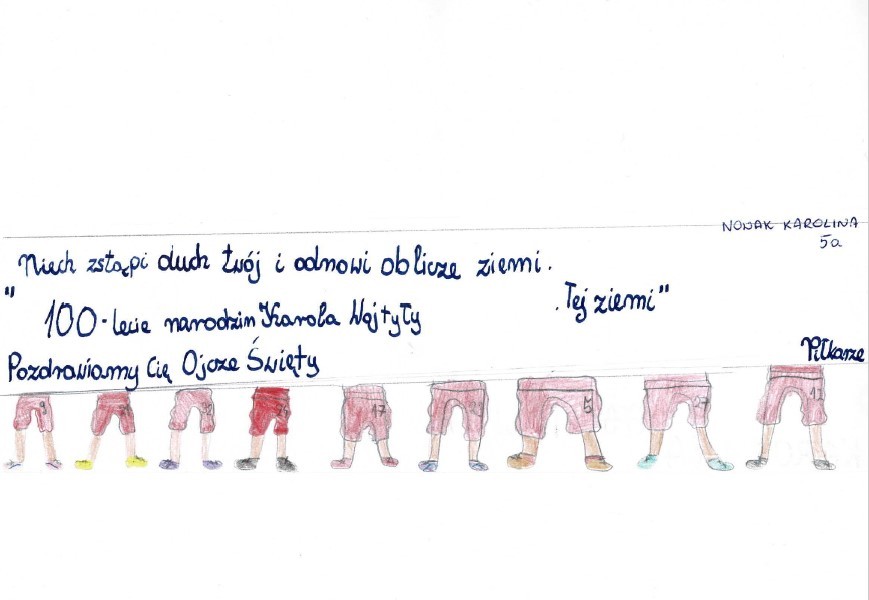 NOWAK KAROLINA
5a
"Niech zstąpi duch twój i odnowi oblicze ziemi.
.Tej ziemi"
100-lecie narodzin Karola Wojtyły
Pozdrawiamy Cię Ojcze Święty
Piłkarze
9
17
5
12